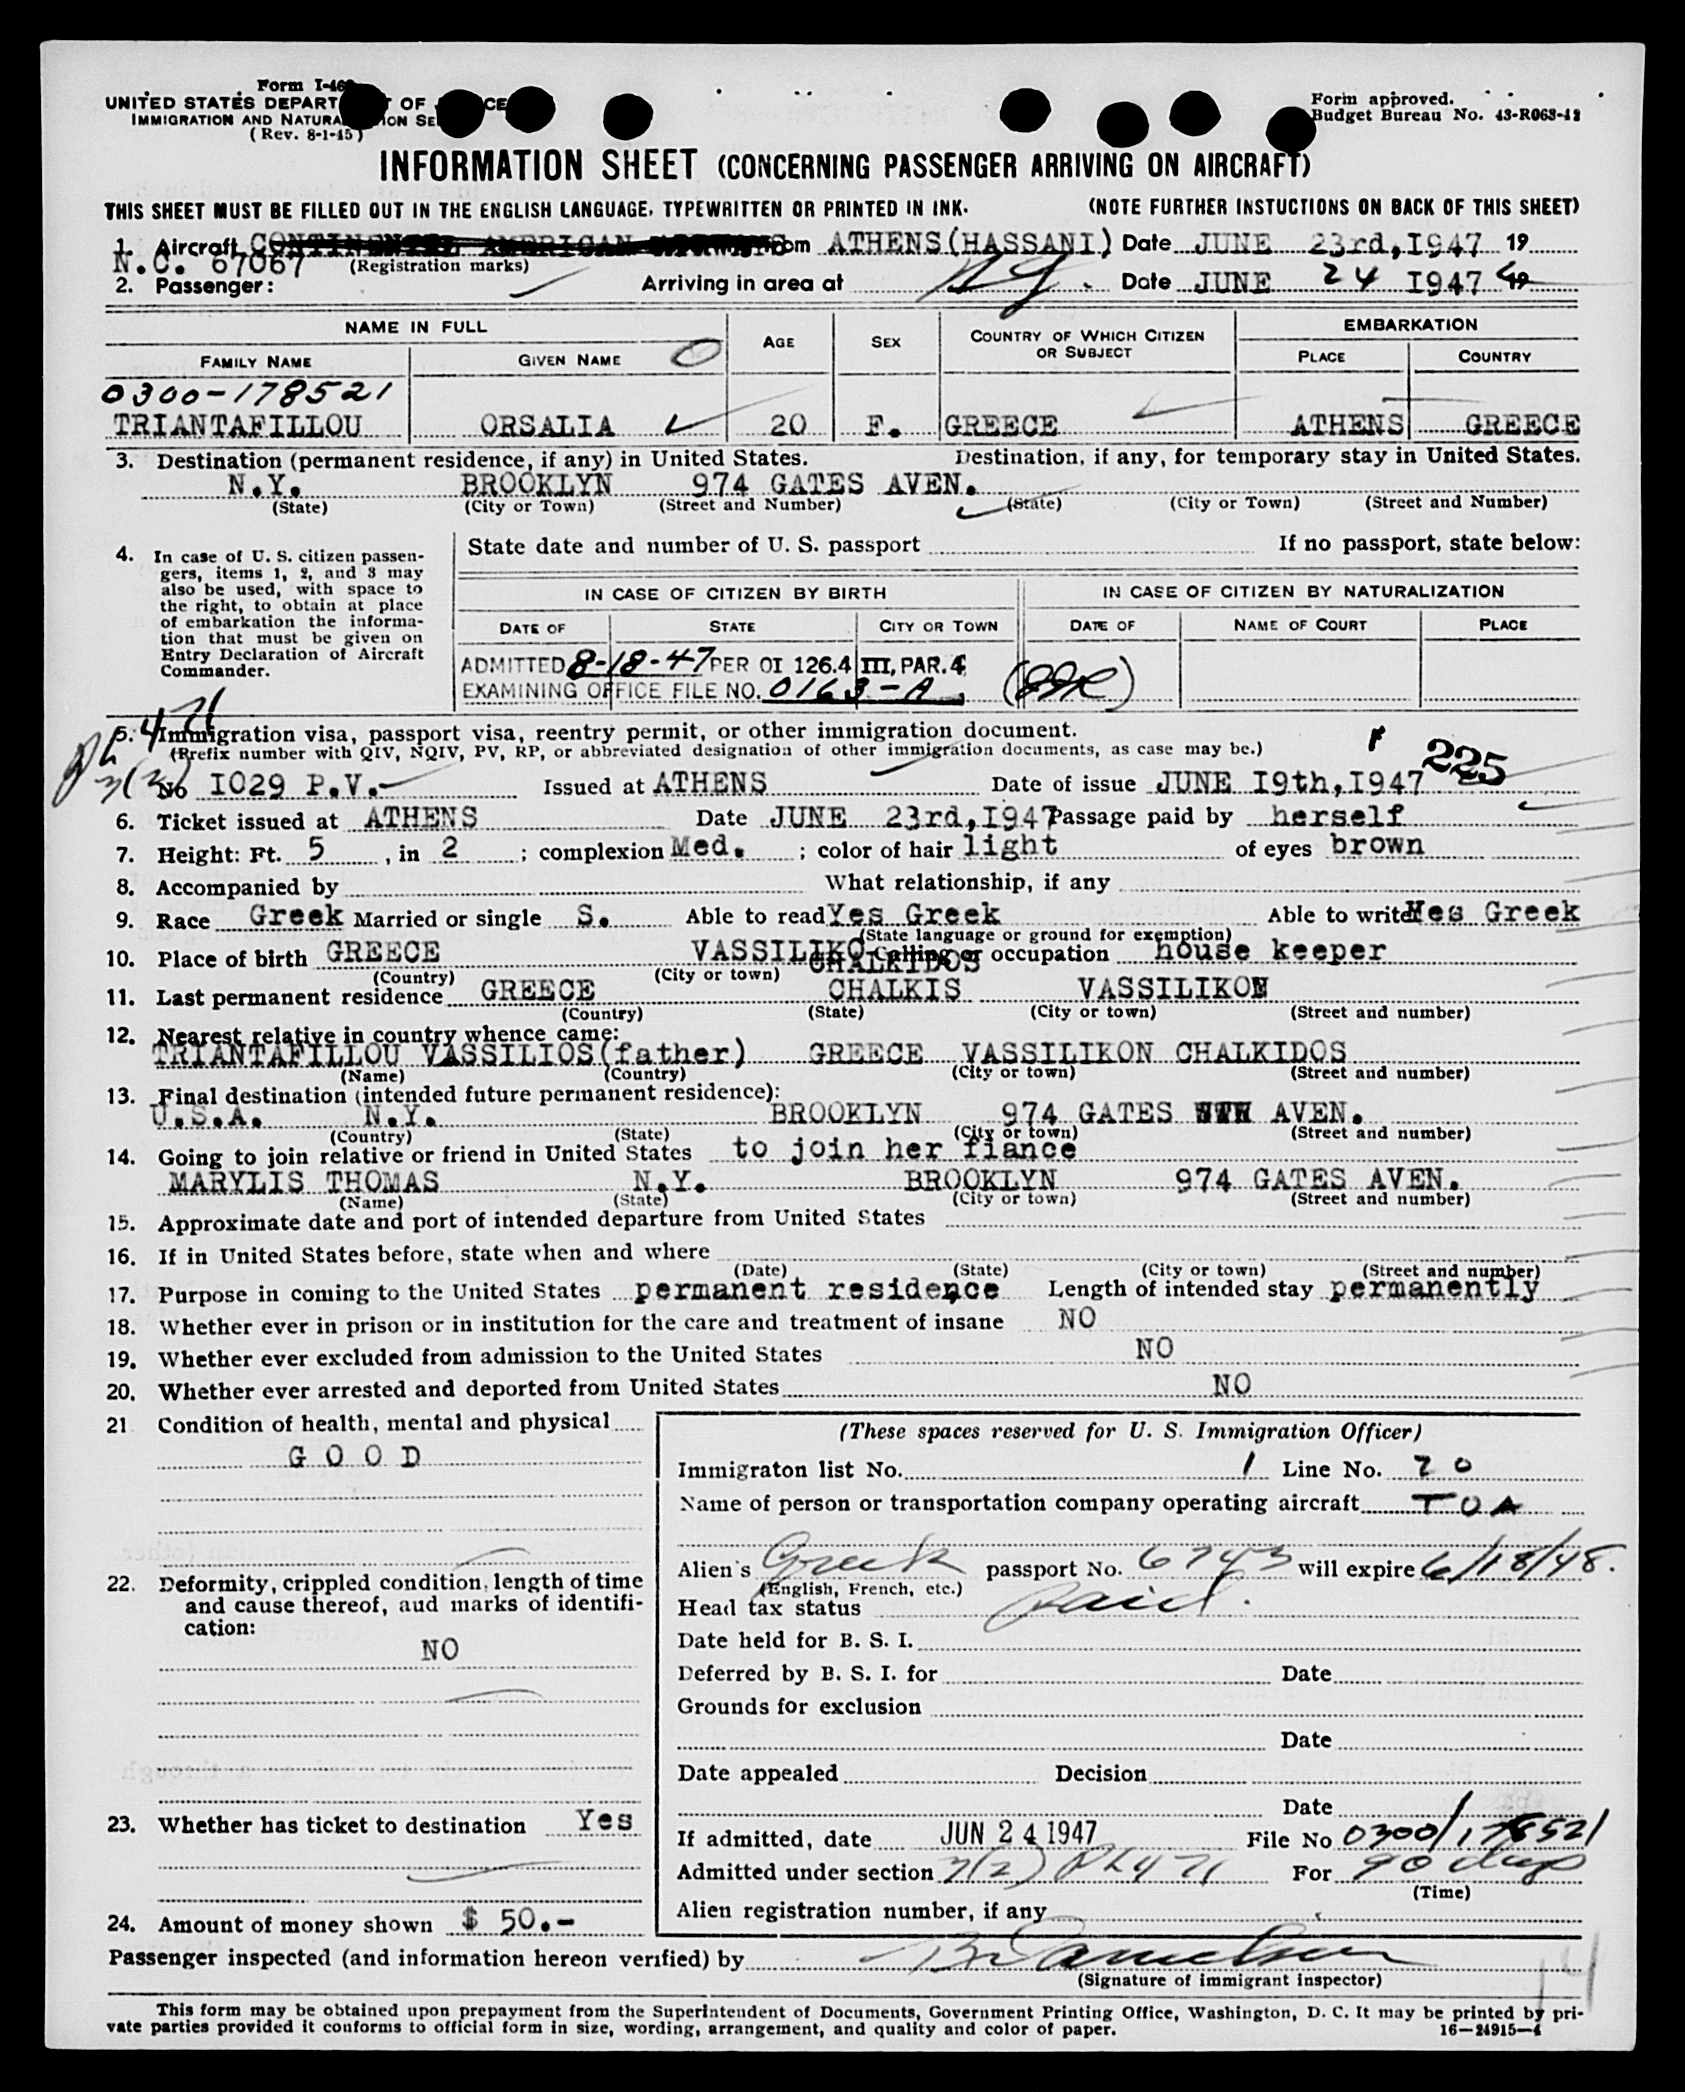 Form I-46
UNITED STATES DEPART OF CE
IMMIGRATION AND NATURA ION SE
(Rev. 8-1-45)
Form approved.
Budget Bureau No. 43-R063-42
INFORMATION SHEET (CONCERNING PASSENGER ARRIVING ON AIRCRAFT)
THIS SHEET MUST BE FILLED OUT IN THE ENGLISH LANGUAGE, TYPEWRITTEN OR PRINTED IN INK. (NOTE FURTHER INSTUCTIONS ON BACK OF THIS SHEET)
1. Aircraft CONTINENTAL AMERICAN om ATHENS(HASSANI) Date JUNE 23rd,I947 19
N.C. 67067 (Registration marks)
2. Passenger: Arriving in area at NY. Date JUNE 24 I947 19
NAME IN FULL AGE SEX COUNTRY OF WHICH CITIZEN OR SUBJECT EMBARKATION
FAMILY NAME GIVEN NAME PLACE COUNTRY
0300-178521
TRIANTAFILLOU ORSALIA 20 F. GREECE ATHENS GREECE
3. Destination (permanent residence, if any) in United States. Destination, if any, for temporary stay in United States.
N.Y. BROOKLYN 974 GATES AVEN.
(State) (City or Town) (Street and Number) (State) (City or Town) (Street and Number)
4. In case of U. S. citizen passen-
gers, items 1, 2, and 3 may
also be used, with space to
the right, to obtain at place
of embarkation the informa-
tion that must be given on
Entry Declaration of Aircraft
Commander.
State date and number of U. S. passport If no passport, state below:
IN CASE OF CITIZEN BY BIRTH IN CASE OF CITIZEN BY NATURALIZATION
DATE OF STATE CITY OR TOWN DATE OF NAME OF COURT PLACE
ADMITTED 8-18-47 PER OI 126.4 III, PAR. 4
EXAMINING OFFICE FILE NO. 0163-A
5. Immigration visa, passport visa, reentry permit, or other immigration document.
(Prefix number with QIV, NQIV, PV, RP, or abbreviated designation of other immigration documents, as case may be.)
225
3(2) No I029 P.V.- Issued at ATHENS Date of issue JUNE I9th,I947
6. Ticket issued at ATHENS Date JUNE 23rd,I947 Passage paid by herself
7. Height: Ft. 5 , in 2 ; complexion Med. ; color of hair light of eyes brown
8. Accompanied by What relationship, if any
9. Race Greek Married or single S. Able to read Yes Greek Able to write Yes Greek
(State language or ground for exemption)
10. Place of birth GREECE VASSILIKO CHALKIDOS Calling or occupation house keeper
(Country) (City or town)
11. Last permanent residence GREECE CHALKIS VASSILIKON
(Country) (State) (City or town) (Street and number)
12. Nearest relative in country whence came:
TRIANTAFILLOU VASSILIOS(father) GREECE VASSILIKON CHALKIDOS
(Name) (Country) (City or town) (Street and number)
13. Final destination (intended future permanent residence):
U.S.A. N.Y. BROOKLYN 974 GATES AVEN.
(Country) (State) (City or town) (Street and number)
14. Going to join relative or friend in United States to join her fiance
MARYLIS THOMAS N.Y. BROOKLYN 974 GATES AVEN.
(Name) (State) (City or town) (Street and number)
15. Approximate date and port of intended departure from United States
16. If in United States before, state when and where
(Date) (State) (City or town) (Street and number)
17. Purpose in coming to the United States permanent residence Length of intended stay permanently
18. Whether ever in prison or in institution for the care and treatment of insane NO
19. Whether ever excluded from admission to the United States NO
20. Whether ever arrested and deported from United States NO
21 Condition of health, mental and physical
G O O D
22. Deformity, crippled condition, length of time
and cause thereof, and marks of identifi-
cation:
NO
23. Whether has ticket to destination Yes
24. Amount of money shown $ 50.-
(These spaces reserved for U. S. Immigration Officer)
Immigraton list No. 1 Line No. 20
Name of person or transportation company operating aircraft TOA
Alien's Greek passport No. 6743 will expire 6/18/48.
(English, French, etc.)
Head tax status paid.
Date held for B. S. I.
Deferred by B. S. I. for Date
Grounds for exclusion
Date
Date appealed Decision
Date
If admitted, date JUN 24 1947 File No 0300/178521
Admitted under section 3(2) PL471 For 90 days
(Time)
Alien registration number, if any
Passenger inspected (and information hereon verified) by
(Signature of immigrant inspector)
14
This form may be obtained upon prepayment from the Superintendent of Documents, Government Printing Office, Washington, D. C. It may be printed by pri-
vate parties provided it conforms to official form in size, wording, arrangement, and quality and color of paper. 16—24915-4